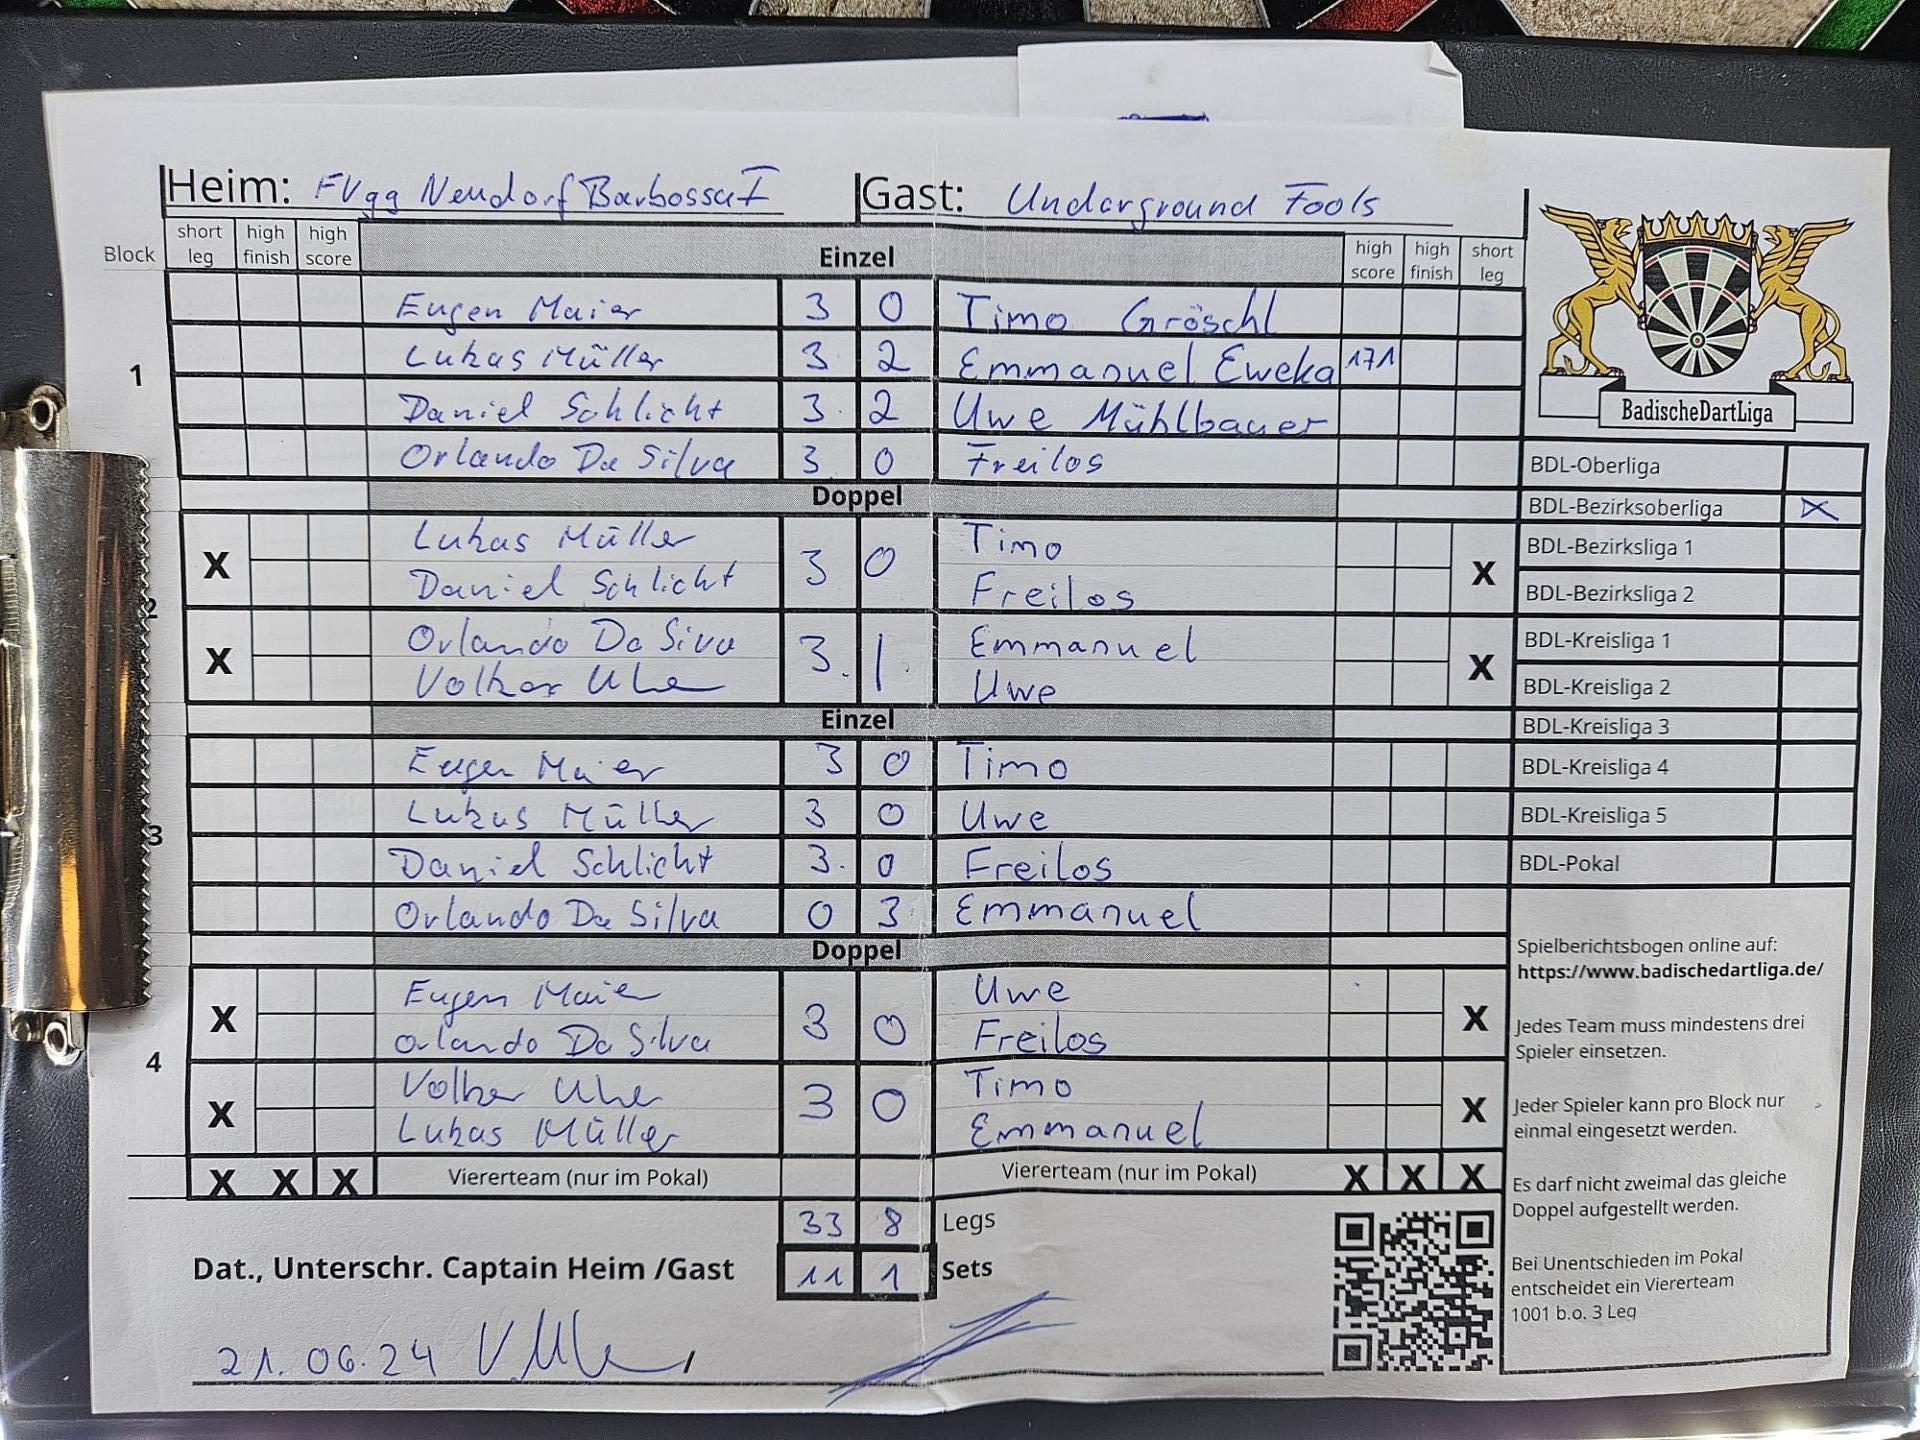 Heim: FVgg Neudorf Barbossa I Gast: Underground Fools
Block short leg high finish high score Einzel high score high finish short leg
1
Eugen Maier 3 0 Timo Gröschl
Lukas Müller 3 2 Emmanuel Eweka 171
Daniel Schlicht 3 2 Uwe Mühlbauer
Orlando Da Silva 3 0 Freilos
Doppel
2
X Lukas Müller 3 0 Timo X
Daniel Schlicht Freilos
X Orlando Da Siva 3 1 Emmanuel X
Volker Uhe Uwe
Einzel
3
Eugen Maier 3 0 Timo
Lukas Müller 3 0 Uwe
Daniel Schlicht 3 0 Freilos
Orlando Da Silva 0 3 Emmanuel
Doppel
4
X Eugen Maier 3 0 Uwe X
Orlando Da Silva Freilos
X Volker Uhe 3 0 Timo X
Lukas Müller Emmanuel
X X X Vierерteam (nur im Pokal) Viererteam (nur im Pokal) X X X
33 8 Legs
Dat., Unterschr. Captain Heim /Gast 11 1 Sets
21.06.24
BadischeDartLiga
BDL-Oberliga
BDL-Bezirksoberliga X
BDL-Bezirksliga 1
BDL-Bezirksliga 2
BDL-Kreisliga 1
BDL-Kreisliga 2
BDL-Kreisliga 3
BDL-Kreisliga 4
BDL-Kreisliga 5
BDL-Pokal
Spielberichtsbogen online auf:
https://www.badischedartliga.de/
Jedes Team muss mindestens drei
Spieler einsetzen.
Jeder Spieler kann pro Block nur
einmal eingesetzt werden.
Es darf nicht zweimal das gleiche
Doppel aufgestellt werden.
Bei Unentschieden im Pokal
entscheidet ein Viererteam
1001 b.o. 3 Leg